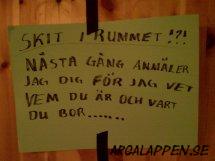 SKIT I RUMMET!?!
NÄSTA GÅNG ANMÄLER
JAG DIG FÖR JAG VET
VEM DU ÄR OCH VART
DU BOR.......
ARGALAPPEN.SE